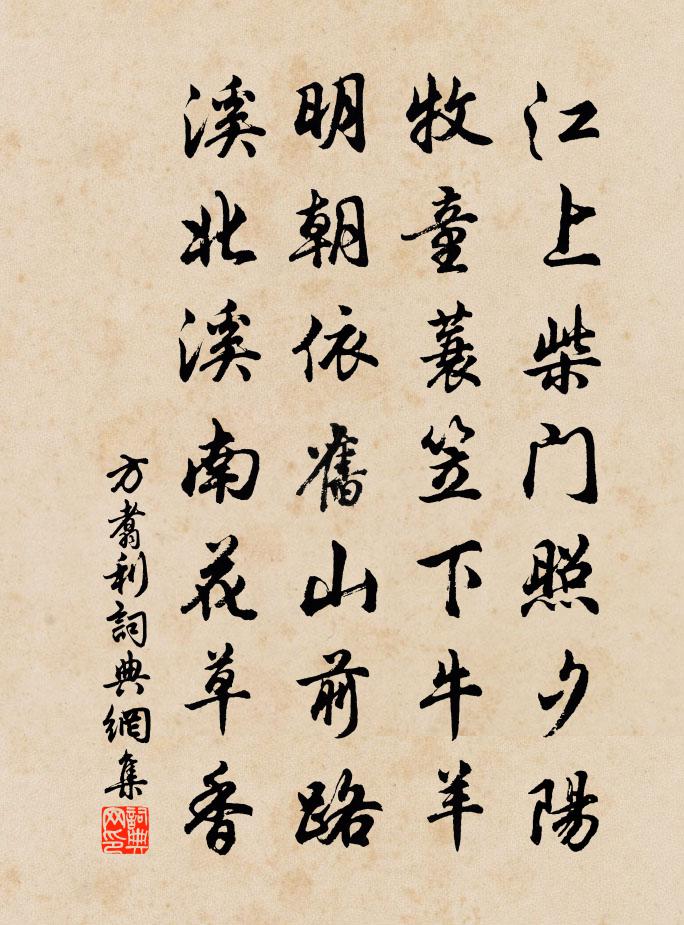 江上柴门照夕陽
牧童蓑笠下牛羊
明朝依舊山前路
溪北溪南花草香
方翥利詞典網集
詞典網印